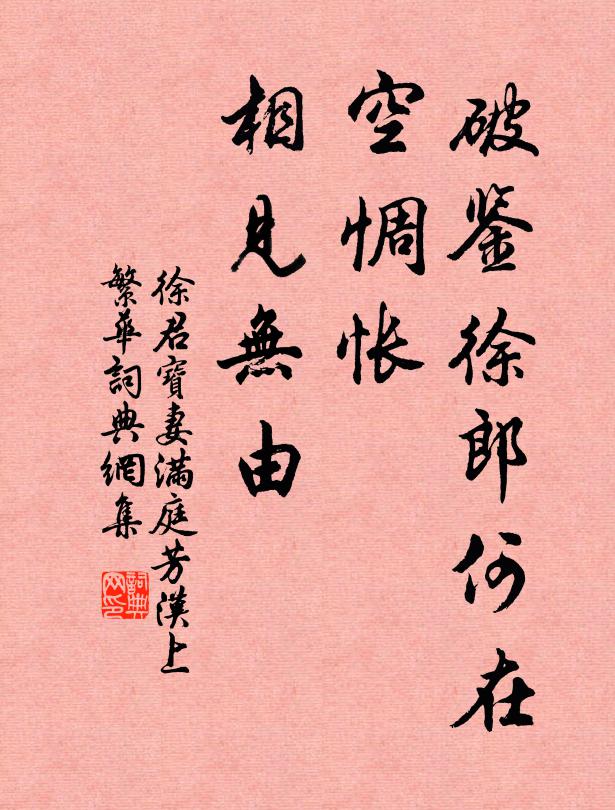 破鉴徐郎何在
空惆怅
相見無由
徐君寶妻滿庭芳漢上
繁华詞典網集
詞典网印